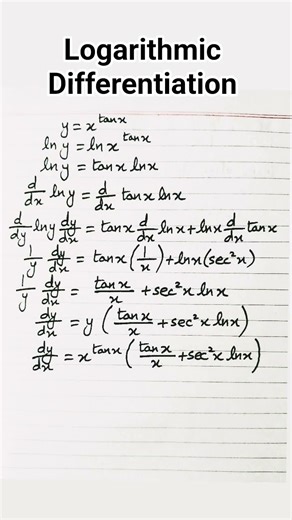 Logarithmic
Differentiation
y = x^tanx
ln y = ln x^tanx
ln y = tanx lnx
d/dx ln y = d/dx tanx lnx
d/dy lny dy/dx = tanx d/dx lnx + lnx d/dx tanx
1/y dy/dx = tanx (1/x) + lnx (sec²x)
1/y dy/dx = tanx/x + sec²x lnx
dy/dx = y (tanx/x + sec²x lnx)
dy/dx = x^tanx (tanx/x + sec²x lnx)